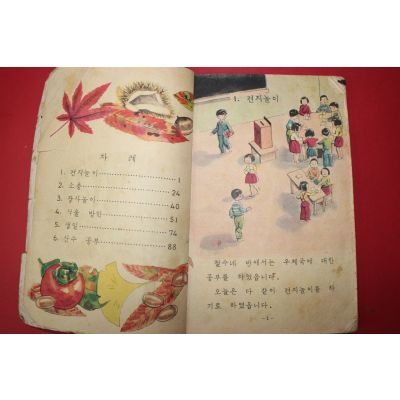 차 례
1. 전지놀이 1
2. 소풍 24
3. 장사놀이 40
4. 겨울 방학 51
5. 생일 74
6. 산수 공부 88
1. 전지놀이
철수네 반에서는 우체국에 대한
공부를 하였습니다.
오늘은 다 같이 전지놀이를 하
기로 하였습니다.
-1-